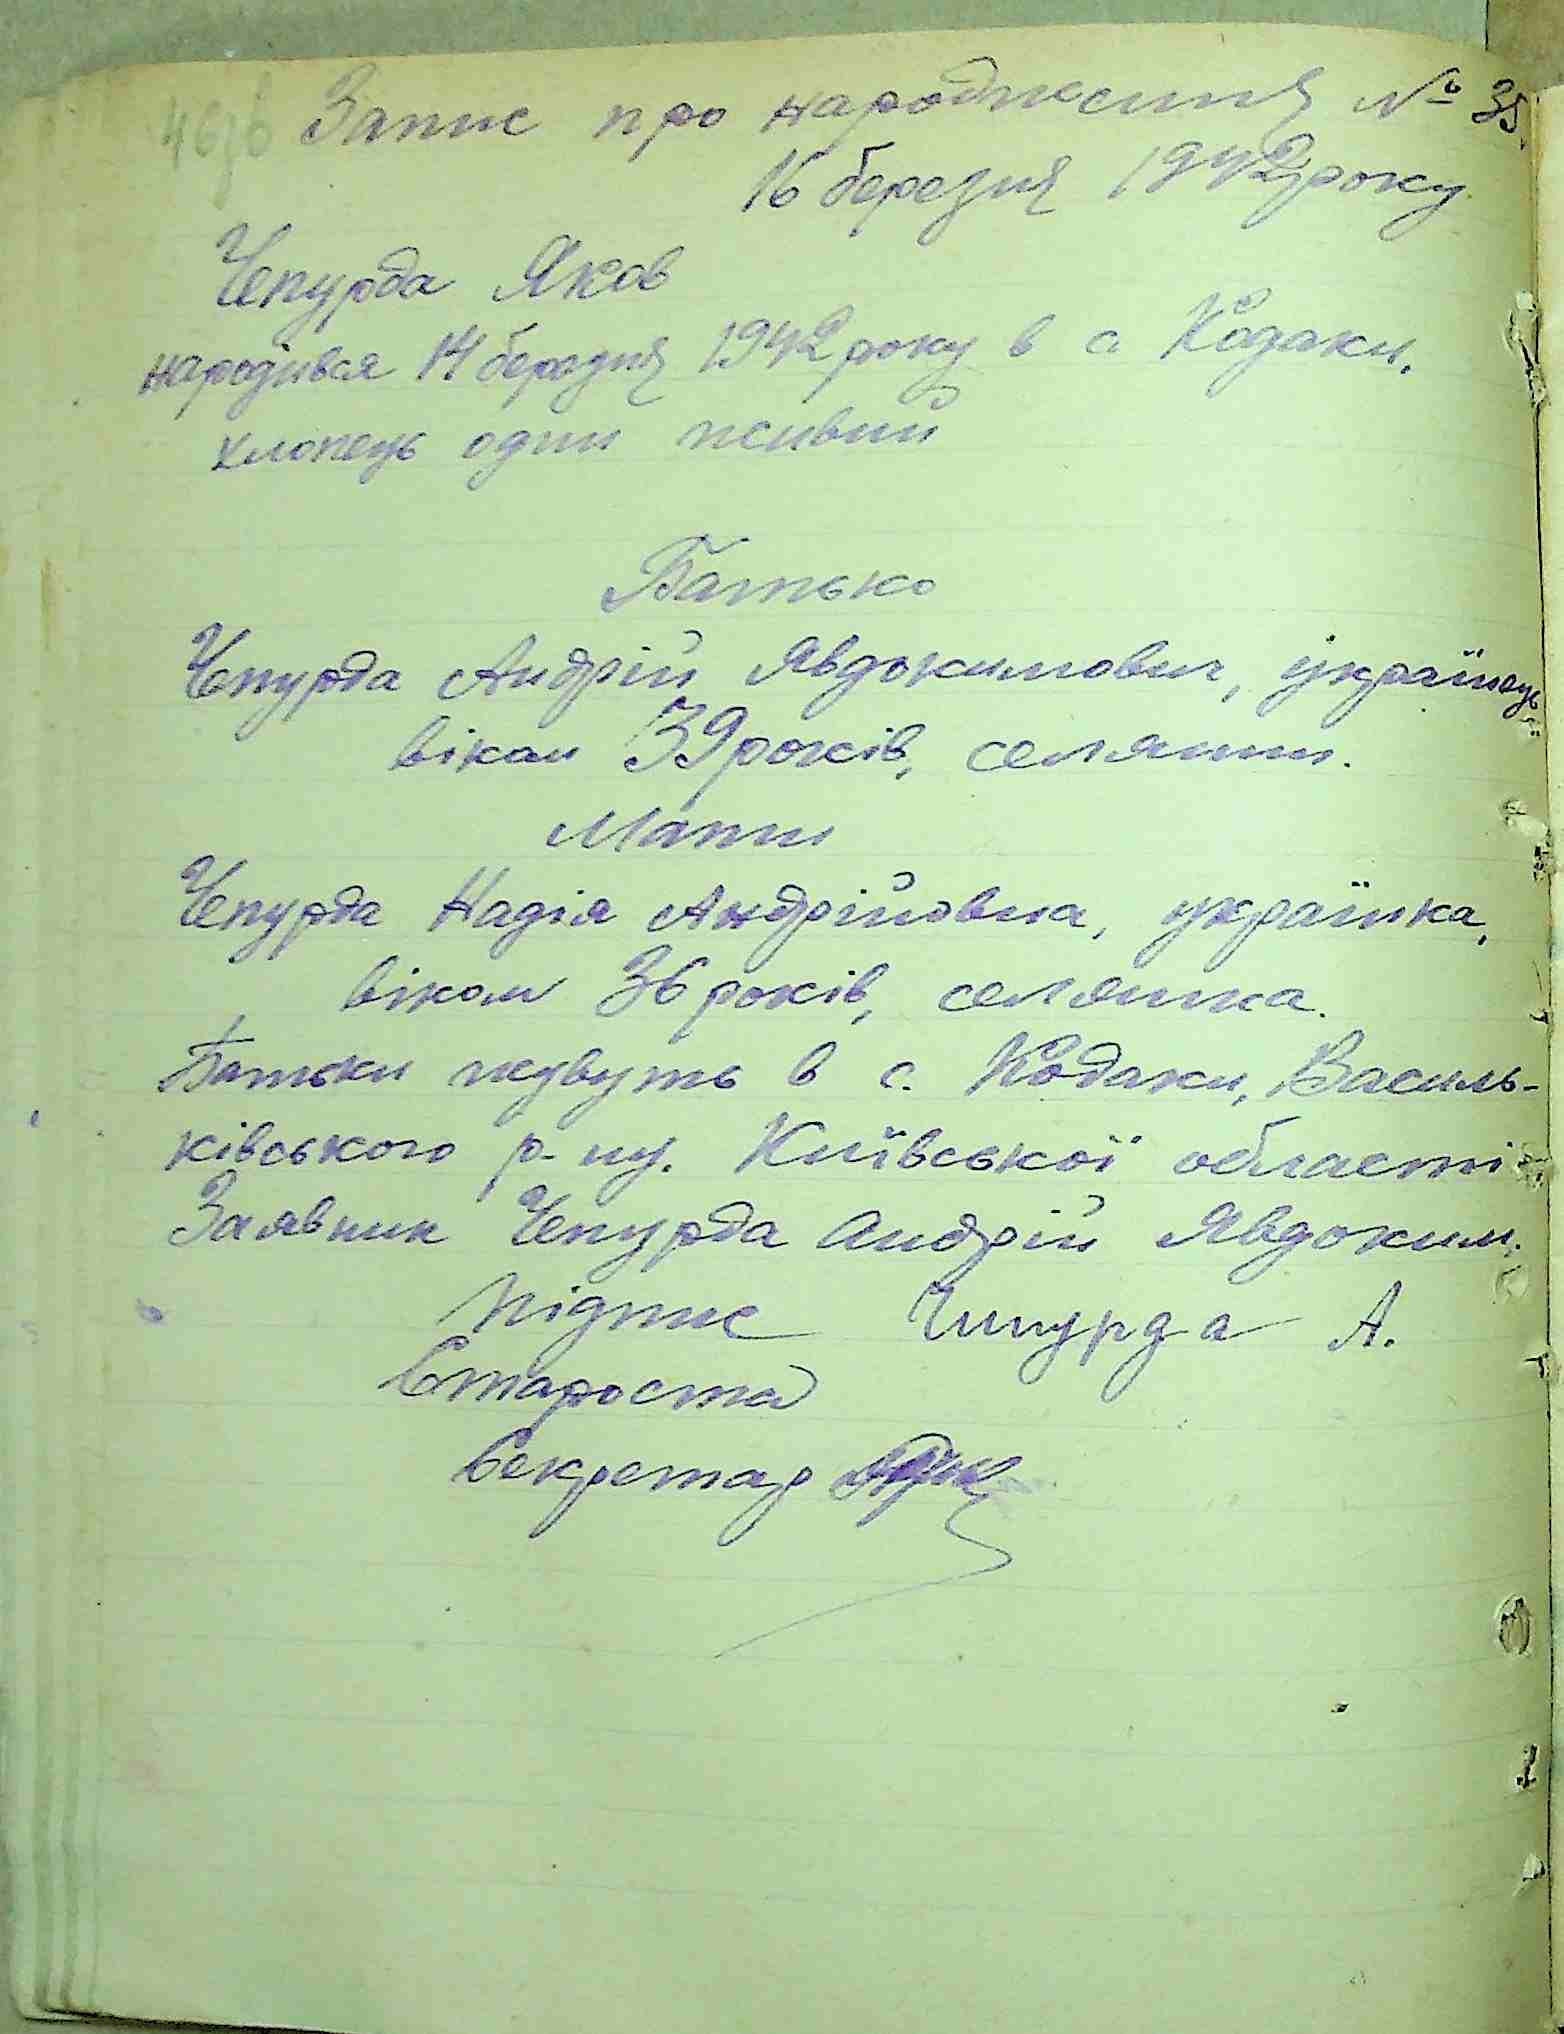 Запис про народження № 35
16 березня 1942 року
Чепурда Яков
народився 14 березня 1942 року в с. Кодаки.
хлопець один живий
Батько
Чепурда Андрій Явдокимович, українець
віком 39 років, селянин.
Мати
Чепурда Надія Андрійовна, українка,
віком 36 років, селянка.
Батьки живуть в с. Кодаки, Василь-
ківського р-ну. Київської області.
Заявник Чепурда Андрій Явдоким.
Підпис Чипурда А.
Староста
Секретар